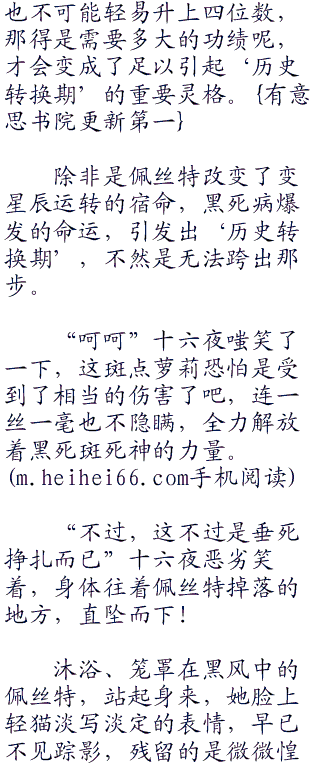 也不可能轻易升上四位数，
那得是需要多大的功绩呢，
才会变成了足以引起‘历史
转换期’的重要灵格。{有意
思书院更新第一}
除非是佩丝特改变了变
星辰运转的宿命，黑死病爆
发的命运，引发出‘历史转
换期’，不然是无法跨出那
步。
“呵呵”十六夜嗤笑了
一下，这斑点萝莉恐怕是受
到了相当的伤害了吧，连一
丝一毫也不隐瞒，全力解放
着黑死斑死神的力量。
(m.heihei66.com手机阅读)
“不过，这不过是垂死
挣扎而已”十六夜恶劣笑
着，身体往着佩丝特掉落的
地方，直坠而下！
沐浴、笼罩在黑风中的
佩丝特，站起身来，她脸上
轻猫淡写淡定的表情，早已
不见踪影，残留的是微微惶